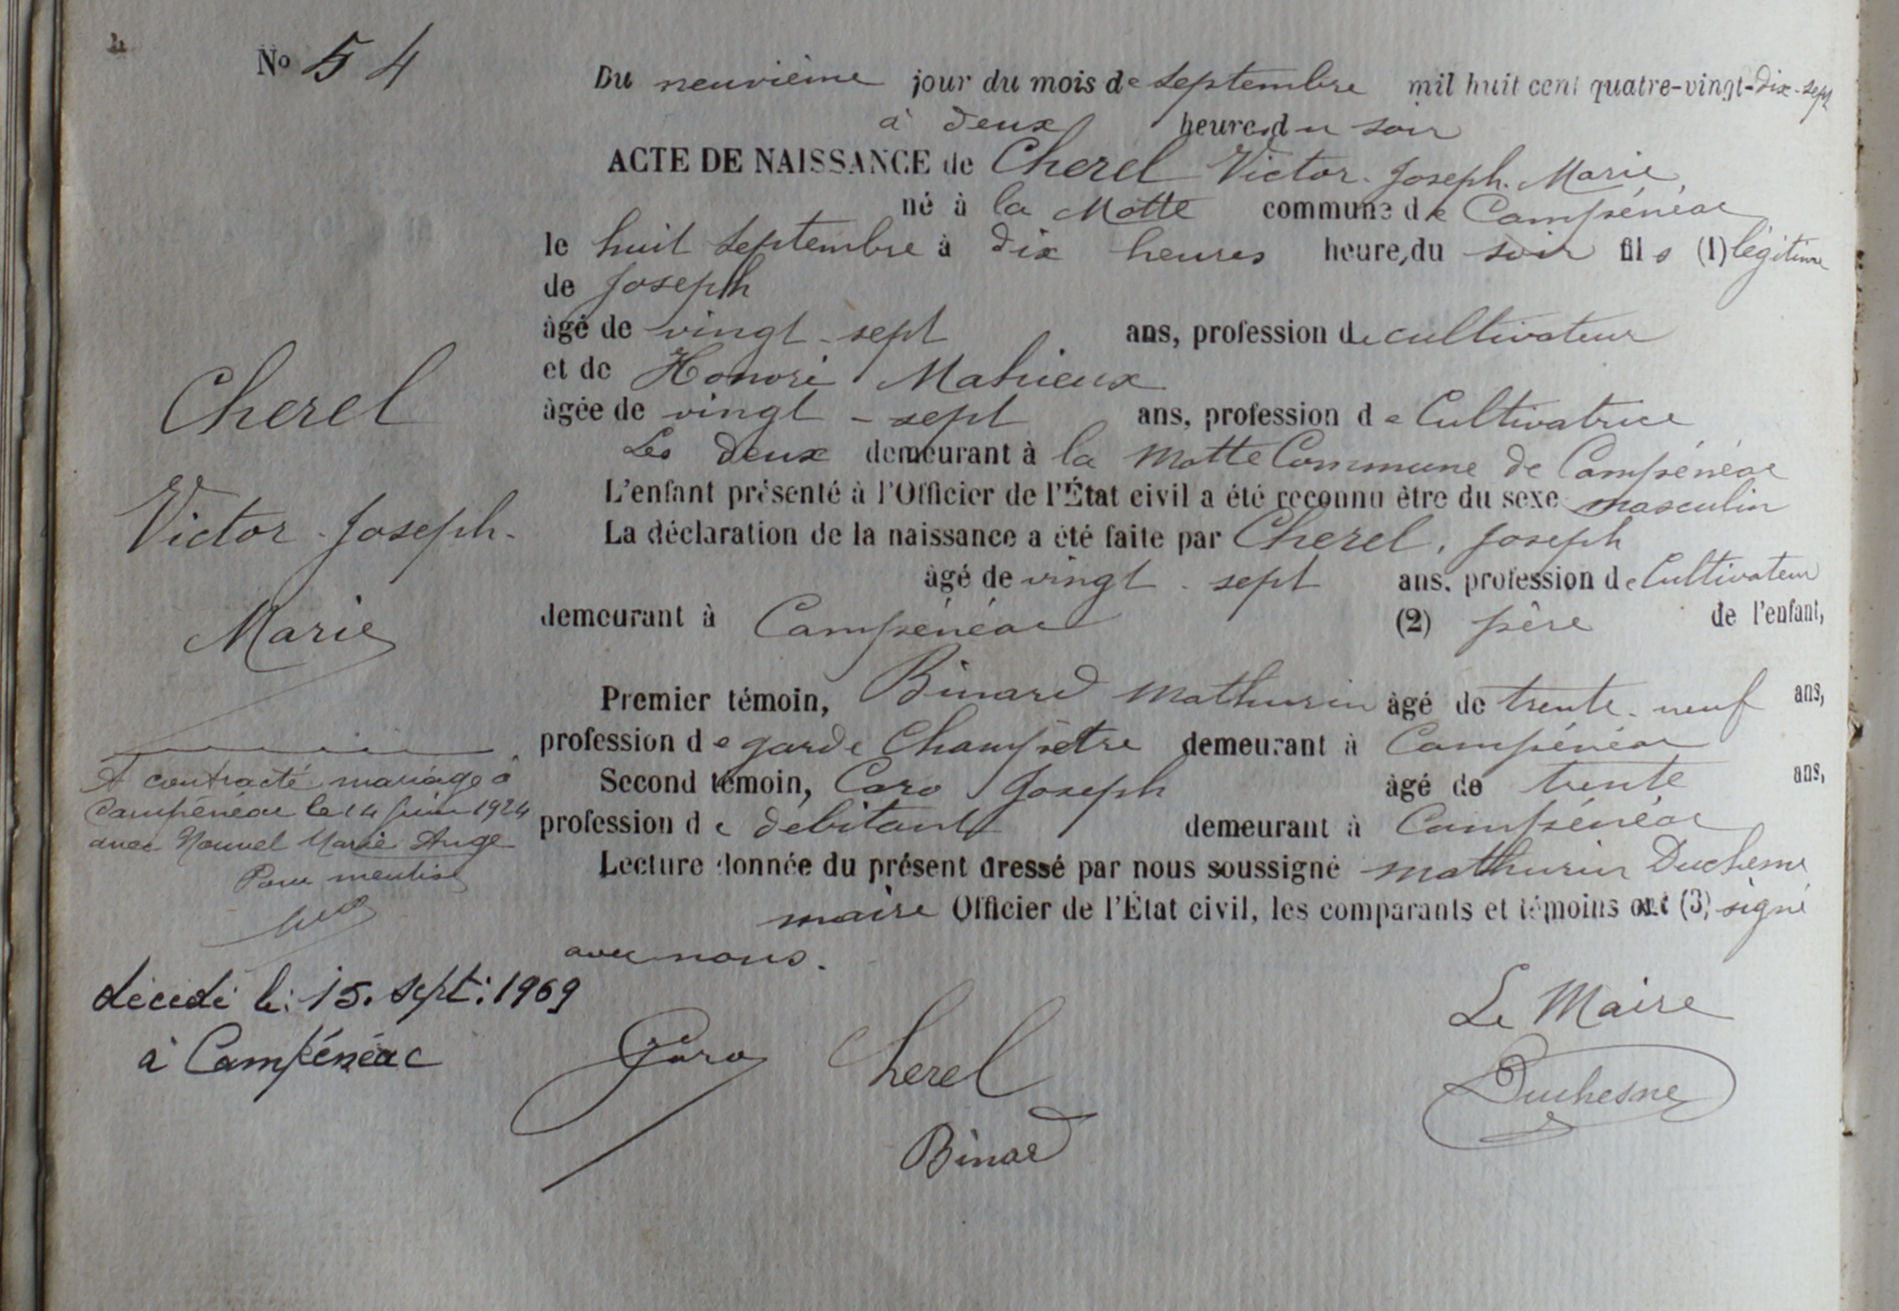 No 54
Du neuvième jour du mois de septembre mil huit cent quatre-vingt-dix-sept
à deux heures du soir
ACTE DE NAISSANCE de Cherel Victor. Joseph. Marie,
né à la Motte commune de Campénéac
le huit septembre à dix heures heure, du soir fils (1) légitime
de Joseph
âgé de vingt-sept ans, profession de cultivateur
et de Honoré Mahieux
âgée de vingt-sept ans, profession de Cultivatrice
Les deux demeurant à la Motte Commune de Campénéac
L'enfant présenté à l'Officier de l'État civil a été reconnu être du sexe masculin
La déclaration de la naissance a été faite par Cherel, Joseph
âgé de vingt-sept ans, profession de Cultivateur
demeurant à Campénéac (2) père de l'enfant,
Premier témoin, Binard Mathurin âgé de trente-neuf ans,
profession de garde Champêtre demeurant à Campénéac
Second témoin, Caro Joseph âgé de trente ans,
profession de debitant demeurant à Campénéac
Lecture donnée du présent dressé par nous soussigné Mathurin Duchesne
maire Officier de l'État civil, les comparants et témoins ont (3) signé
avec nous.
Cherel
Victor-Joseph-
Marie
A contracté mariage à
Campénéac le 14 juin 1924
avec Nouvel Marie Ange
Pour mention
décédé le: 15. sept: 1969
à Campénéac
Caro Cherel
Binard
Le Maire
Duchesne